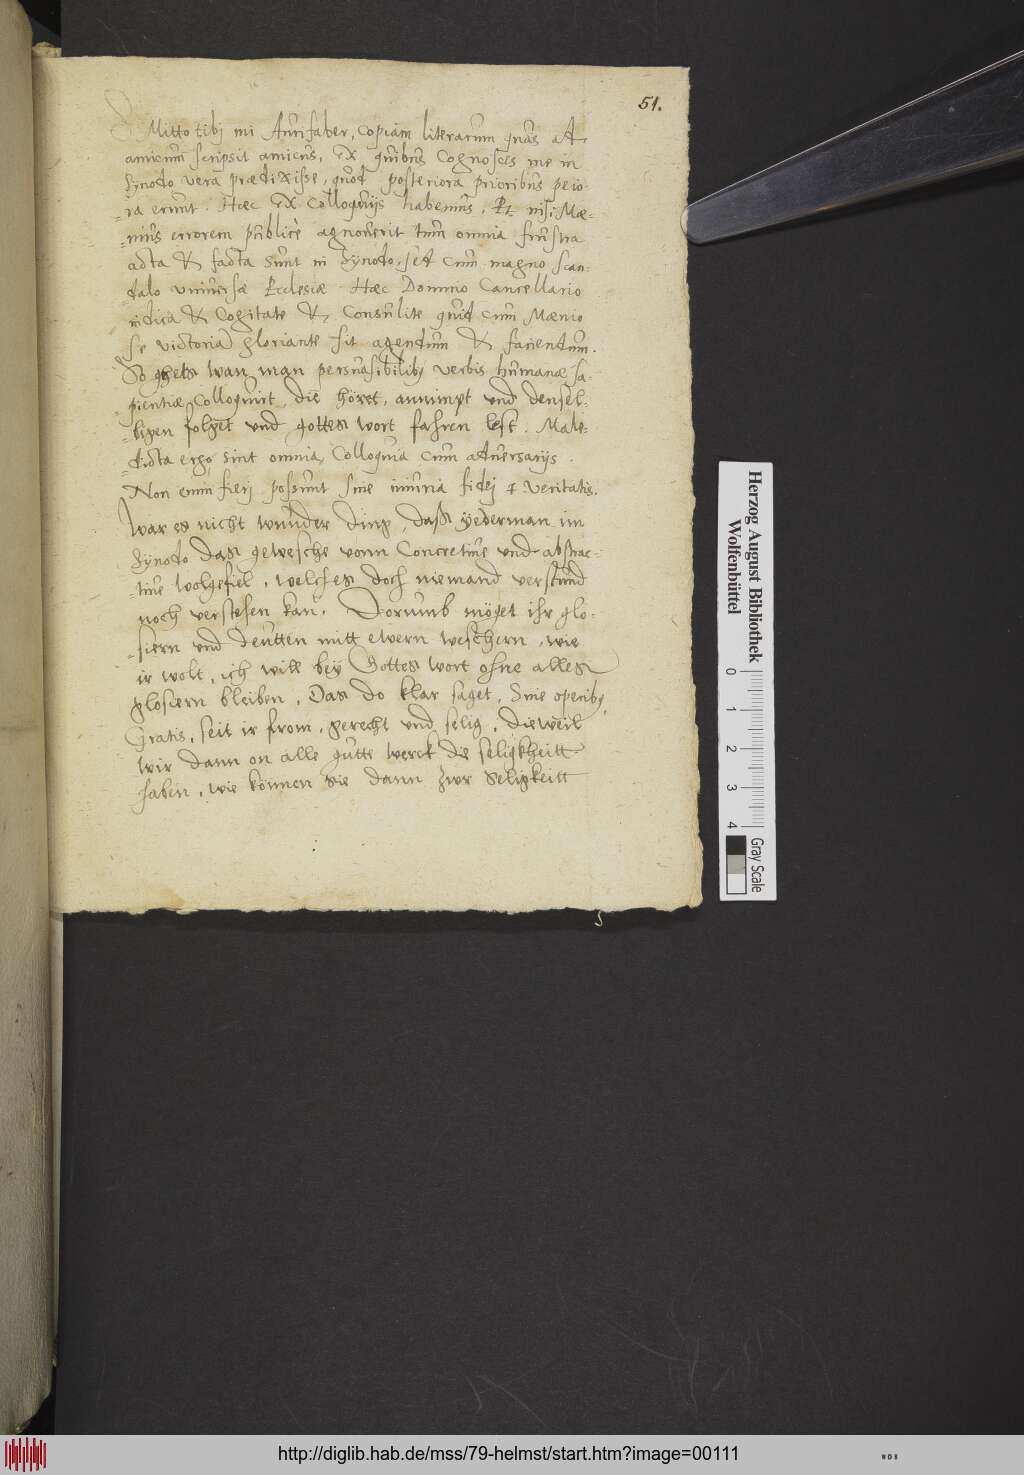 51.
Mitto tibj mi Aurifaber, Copiam literarum quas ad
amicum scripsit amicus, ex quibus Cognosces me in
Synodo vera prædixisse, quod posteriora prioribus peio-
ra erunt. Hæc ex Colloquijs habemus, Et nisi Mæ-
nius errorem publicè agnoverit tum omnia frustra
acta et facta sunt in Synodo, sed cum magno scan-
dalo universæ Ecclesiæ Hæc Domino Cancellario
indica et Cogitate et Consulite quid cum Mænio
se victoria gloriante sit agendum et faciendum.
So gehets wan man persuasibilibus verbis humanæ sa-
pientiæ Colloquirt, die höret, annimpt und densel-
bigen folget und gottes wort fahren lest. Male-
dicta ergo sint omnia Colloquia cum adversarijs.
Non enim fierj possunt sine iniuria fidej et veritatis.
War es nicht wunder ding, daß yederman im
Synodo das gewesche vonn Concretive und abstrac-
tive wolgefiel, welches doch niemand verstund
noch verstehen kan. Dorumb möget ihr glo-
siern und deutten mitt ewern weschern, wie
ir wolt, ich will bey Gottes wort ohne alles
glosiern bleiben, Das do klar saget, Sine operibus,
Gratis, seit ir from, gerecht und selig, dieweil
wir dann on alle gutte werck die seligkheitt
haben, wie können sie dann zur Seligkeitt
Herzog August Bibliothek
Wolfenbüttel
0
1
2
3
4
Gray Scale
http://diglib.hab.de/mss/79-helmst/start.htm?image=00111
WDB